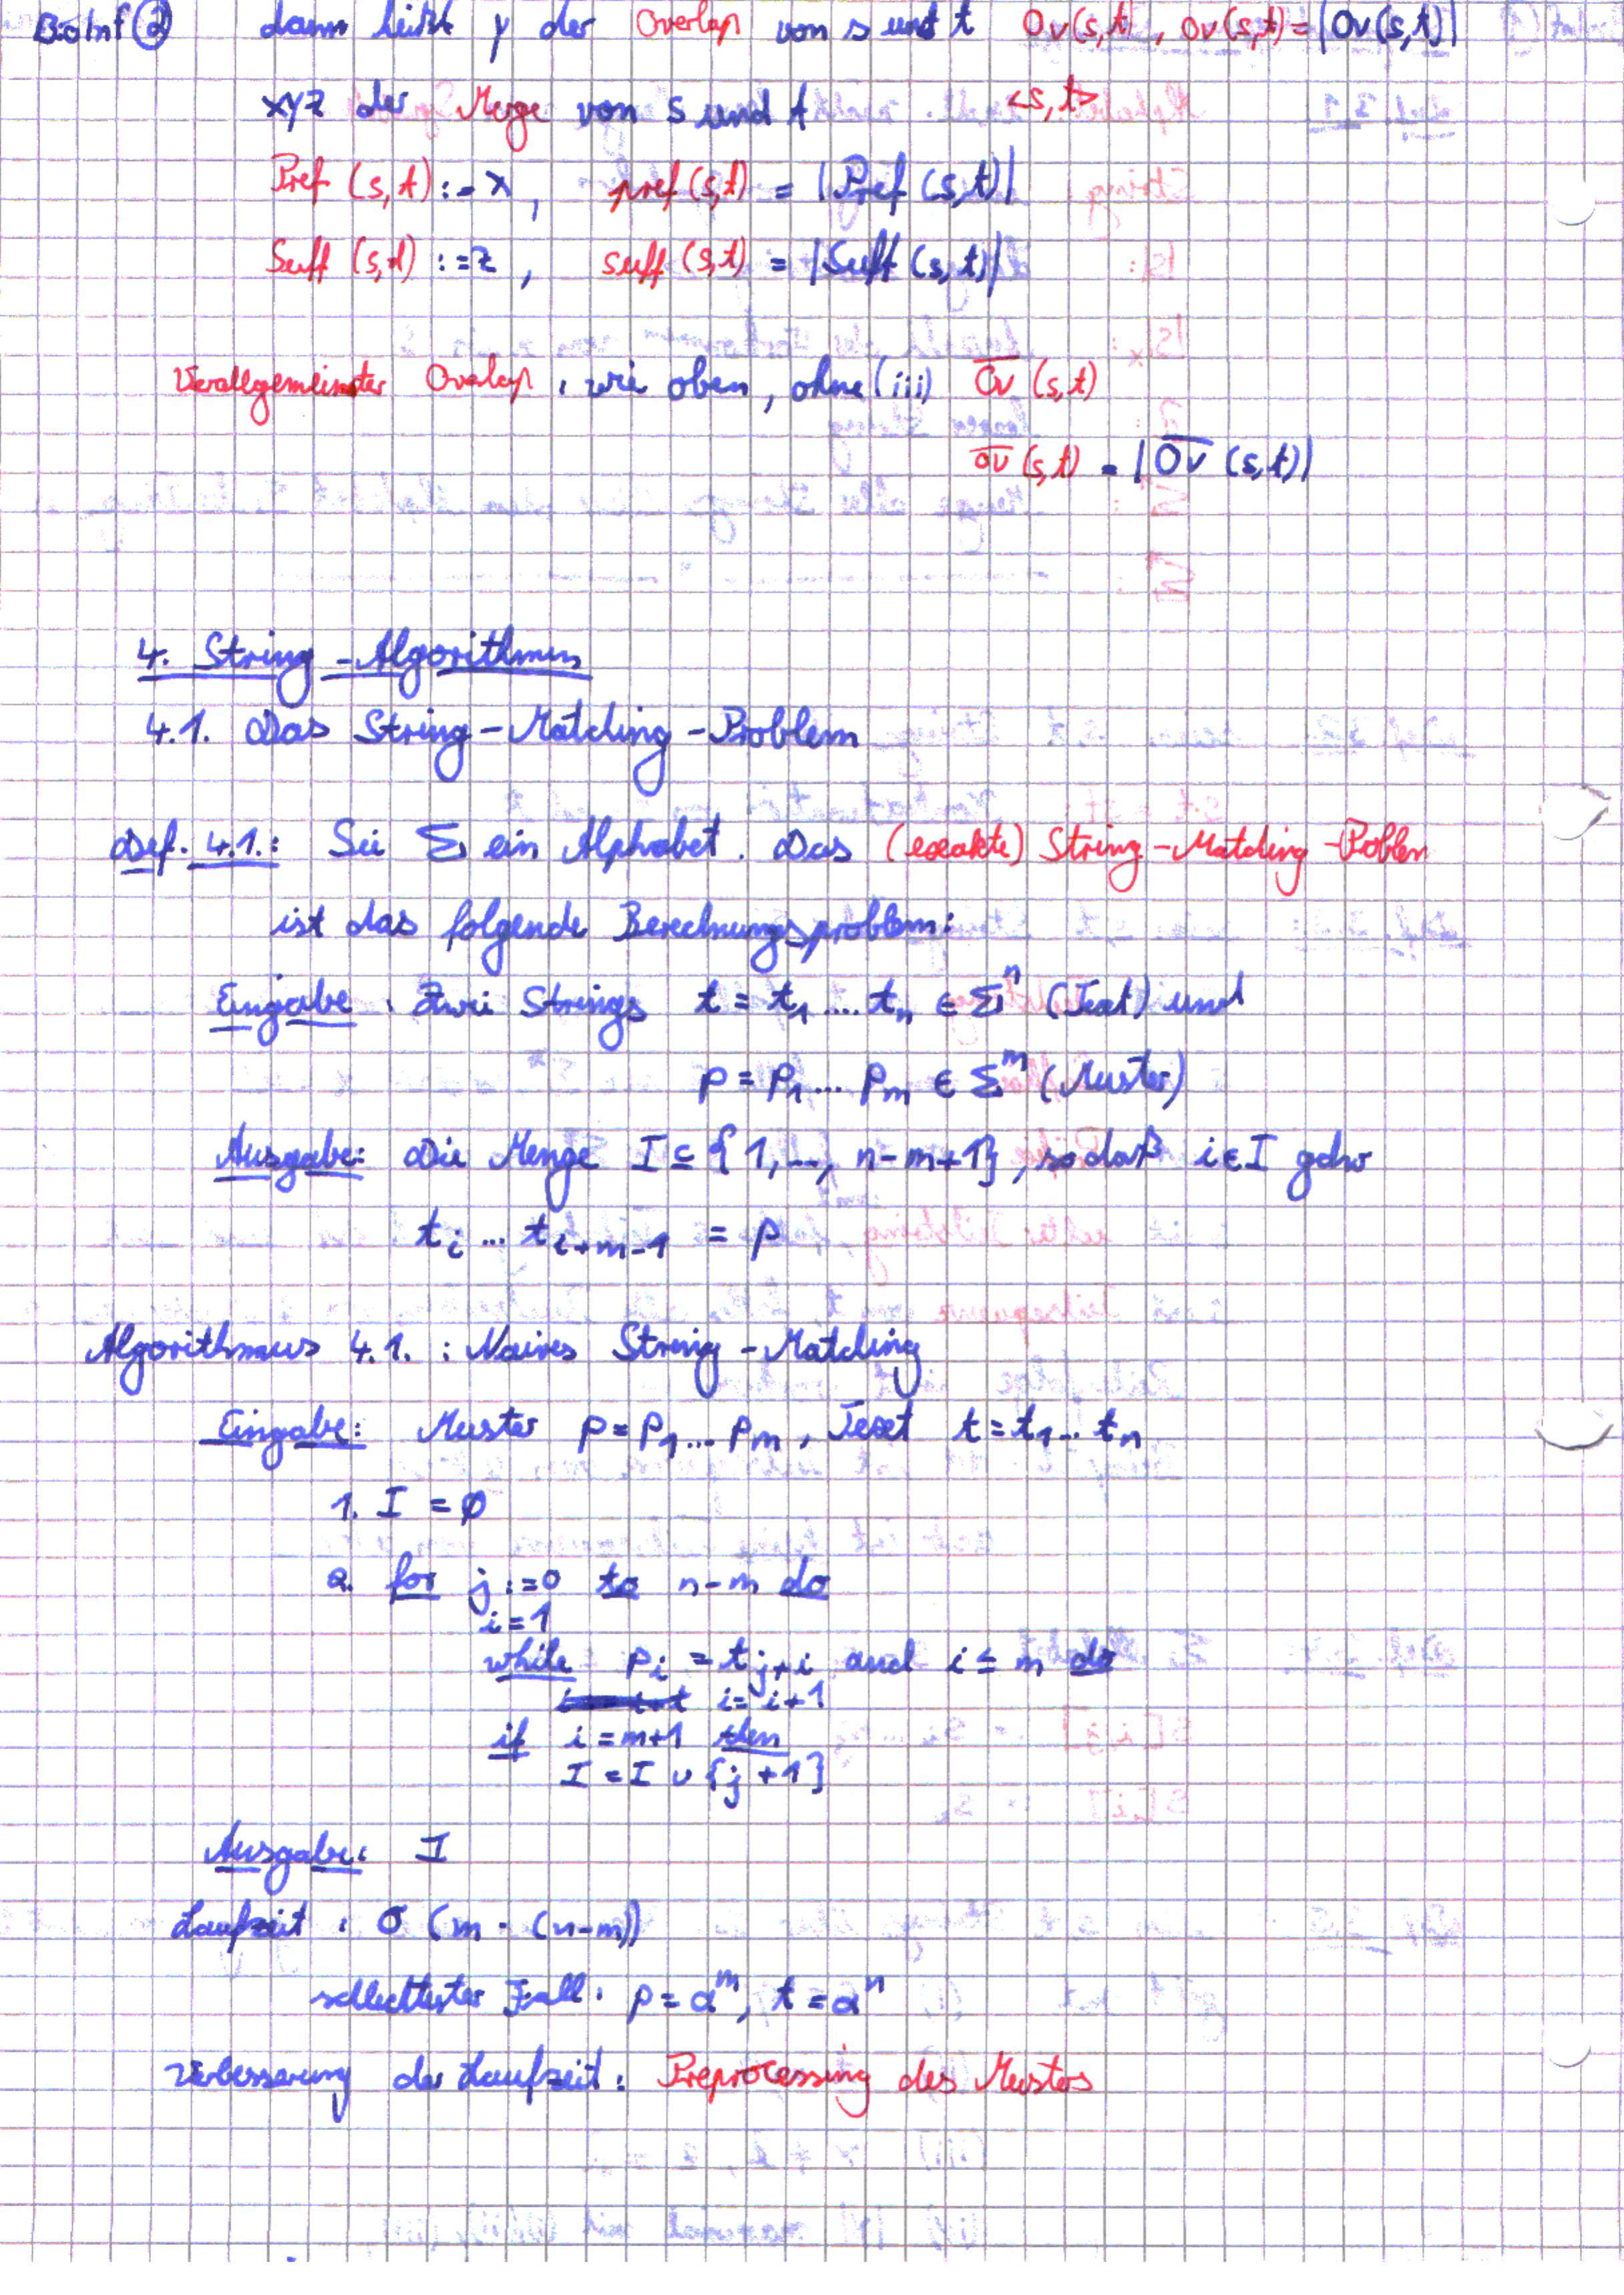 BioInf ② dann heißt y der Overlap von s und t Ov(s,t), ov(s,t) = |Ov(s,t)|
xyz der Merge von s und t <s,t>
Pref (s,t) := x, pref (s,t) = |Pref (s,t)|
Suff (s,t) := z, suff (s,t) = |Suff (s,t)|
Verallgemeinerter Overlap: wie oben, ohne (iii) O̅v̅ (s,t)
o̅v̅ (s,t) = |O̅v̅ (s,t)|
4. String-Algorithmen
4.1. Das String-Matching-Problem
Def. 4.1.: Sei Σ ein Alphabet. Das (exakte) String-Matching-Problem
ist das folgende Berechnungsproblem:
Eingabe: Zwei Strings t = t₁ .... tₙ ∈ Σⁿ (Text) und
p = p₁ ... pₘ ∈ Σᵐ (Muster)
Ausgabe: Die Menge I ⊆ {1, ..., n-m+1}, sodaß i ∈ I gdw
t_i ... t_{i+m-1} = p
Algorithmus 4.1.: Naives String-Matching
Eingabe: Muster p = p₁ ... pₘ, Text t = t₁ ... tₙ
1. I = ∅
2. for j := 0 to n-m do
i = 1
while p_i = t_{j+i} and i ≤ m do
i = i+1
if i = m+1 then
I = I ∪ {j+1}
Ausgabe: I
Laufzeit: O (m · (n-m))
schlechtester Fall: p = a^m, t = a^n
Verbesserung der Laufzeit: Preprocessing des Musters